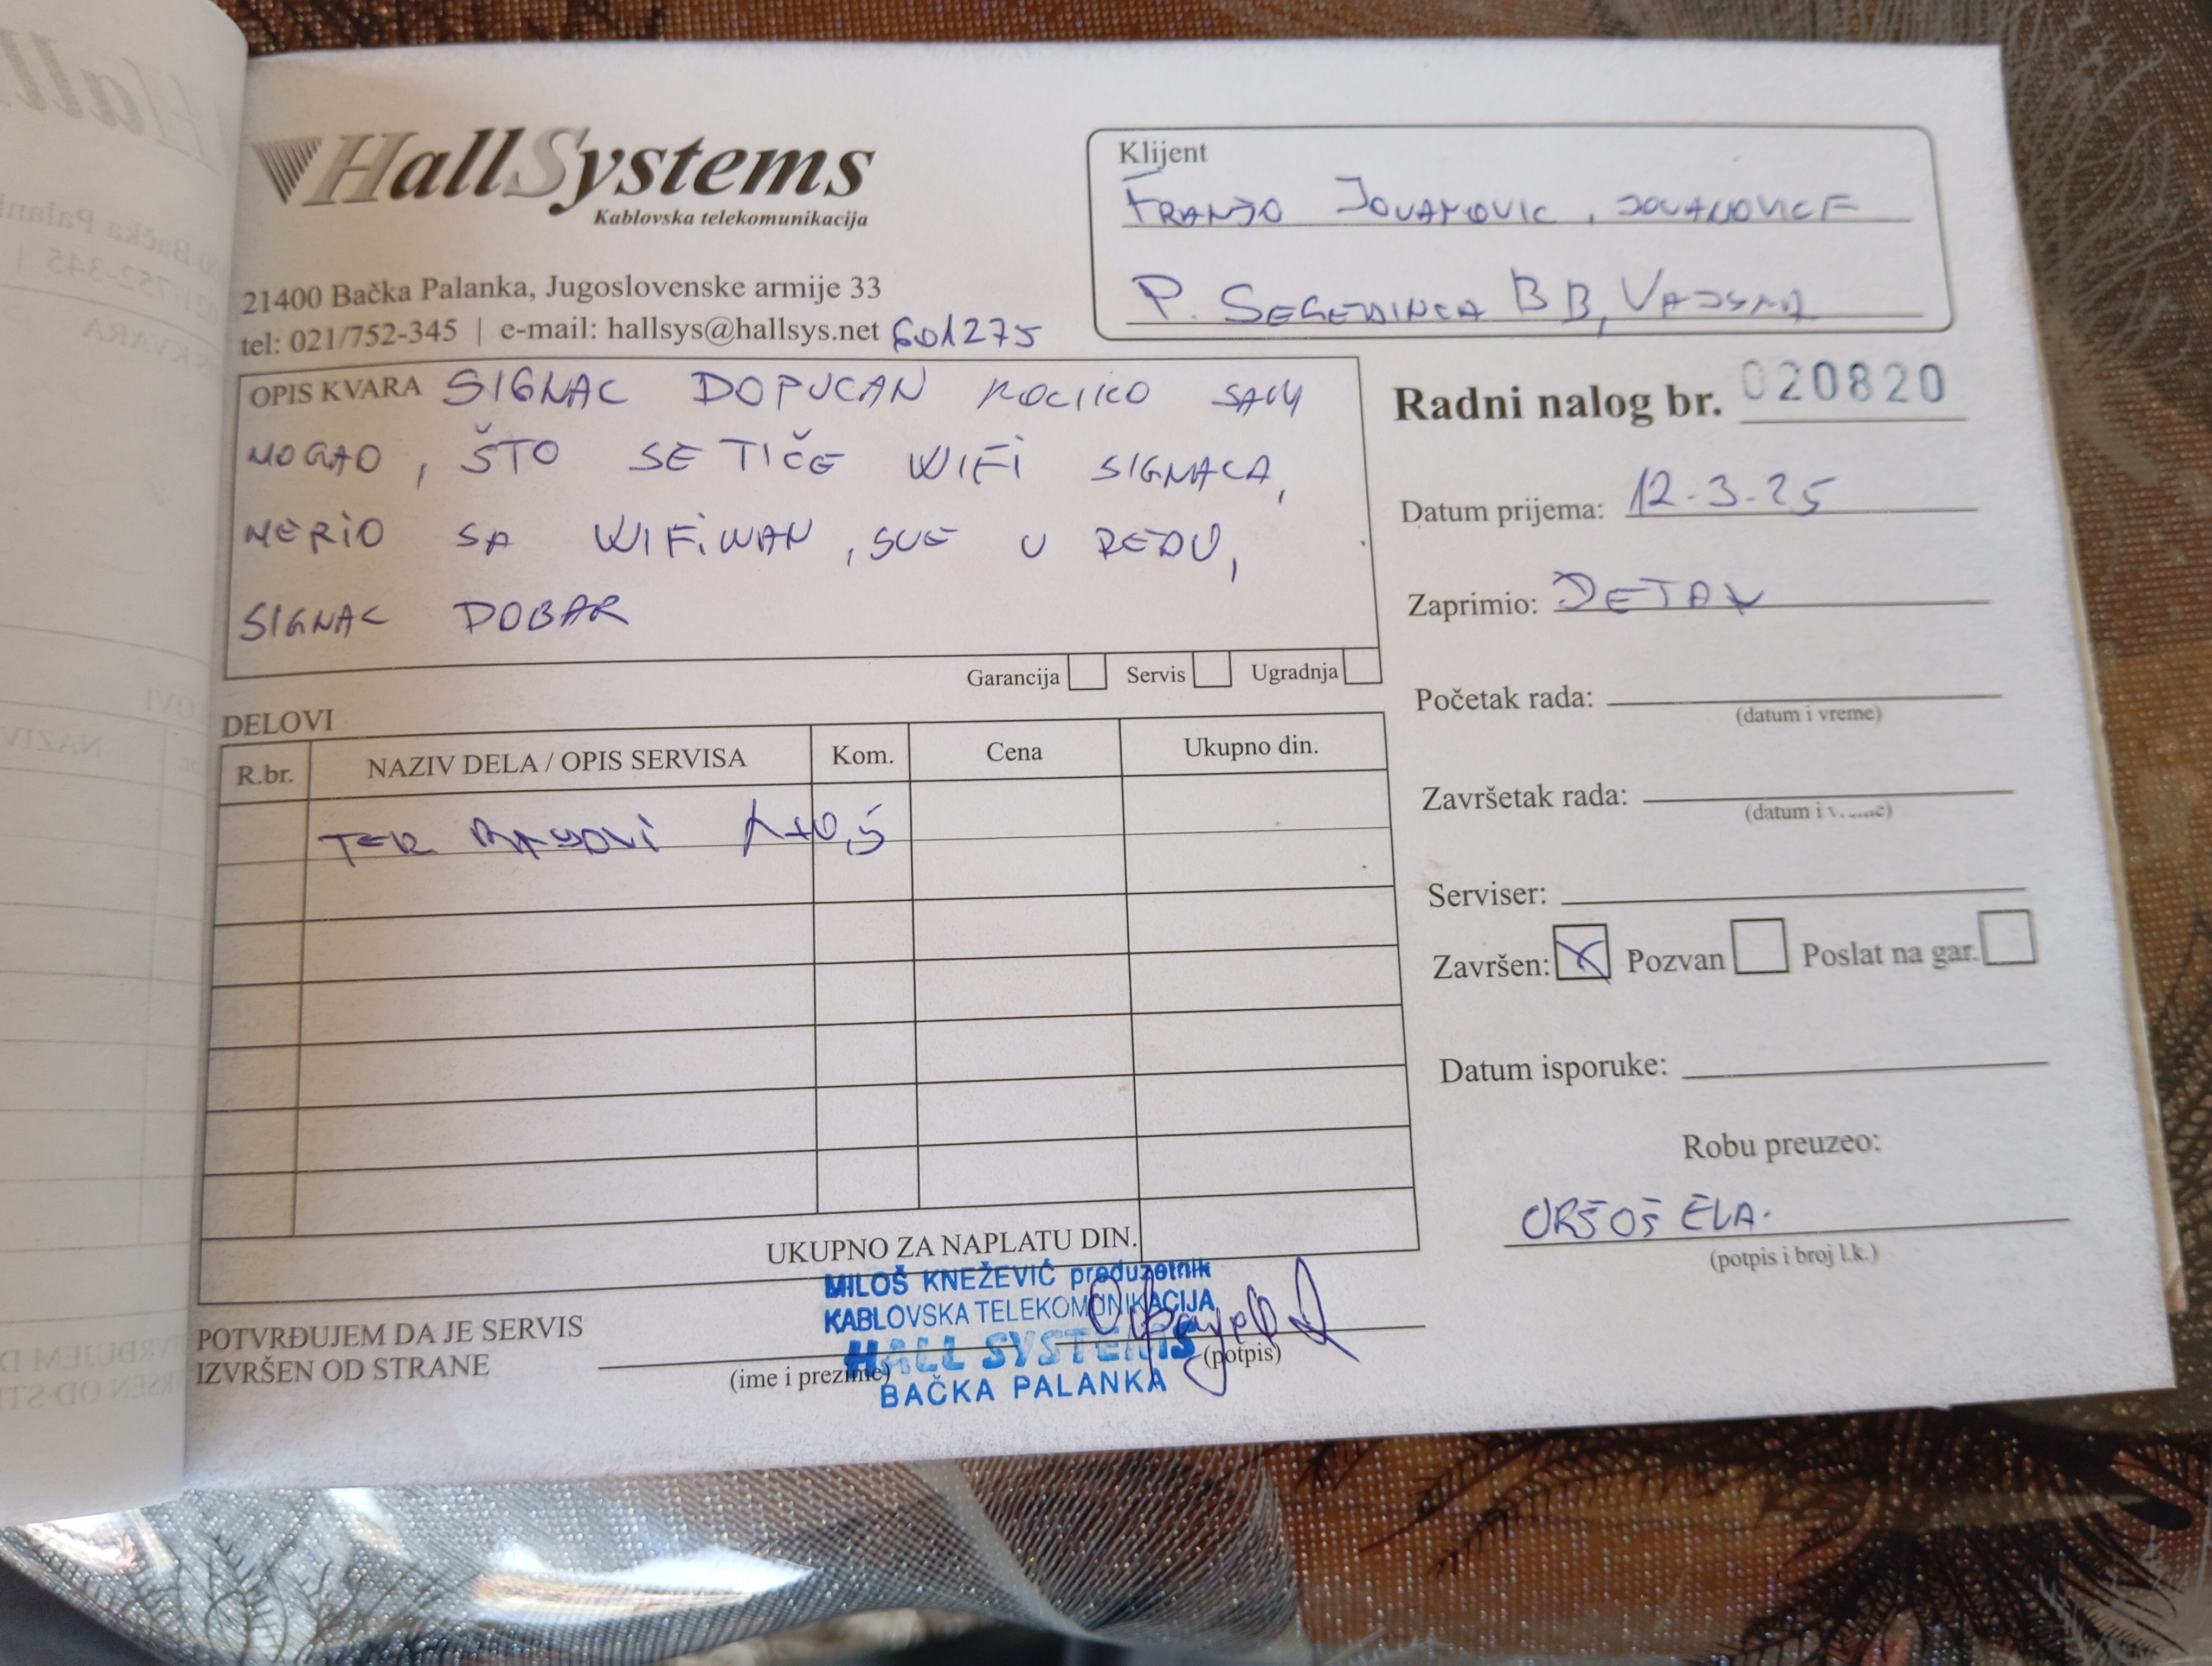 HallSystems
Kablovska telekomunikacija
21400 Bačka Palanka, Jugoslovenske armije 33
tel: 021/752-345 | e-mail: hallsys@hallsys.net 601275
Klijent
FRANJO JOVANOVIC, JOVANOVICE
P. SEGEDINCA BB, VAJSKA
OPIS KVARA SIGNAL DOPUCAN KOLIKO SAM
MOGAO, ŠTO SE TIČE WIFI SIGNALA,
MERIO SA WIFIMAN, SVE U REDU,
SIGNAL DOBAR
Garancija Servis Ugradnja
Radni nalog br. 020820
Datum prijema: 12.3.25
Zaprimio: DETAX
Početak rada:
(datum i vreme)
Završetak rada:
(datum i
Serviser:
Završen: X Pozvan Poslat na gar.
Datum isporuke:
Robu preuzeo:
URŠOŠ ELA.
(potpis i broj l.k.)
DELOVI
R.br. NAZIV DELA / OPIS SERVISA Kom. Cena Ukupno din.
TER RADOVI 1+0,5
UKUPNO ZA NAPLATU DIN.
MILOŠ KNEŽEVIĆ preduzetnik
KABLOVSKA TELEKOMUNIKACIJA
HALL SYSTEMS
BAČKA PALANKA
POTVRĐUJEM DA JE SERVIS
IZVRŠEN OD STRANE
(ime i prezime)
(potpis)